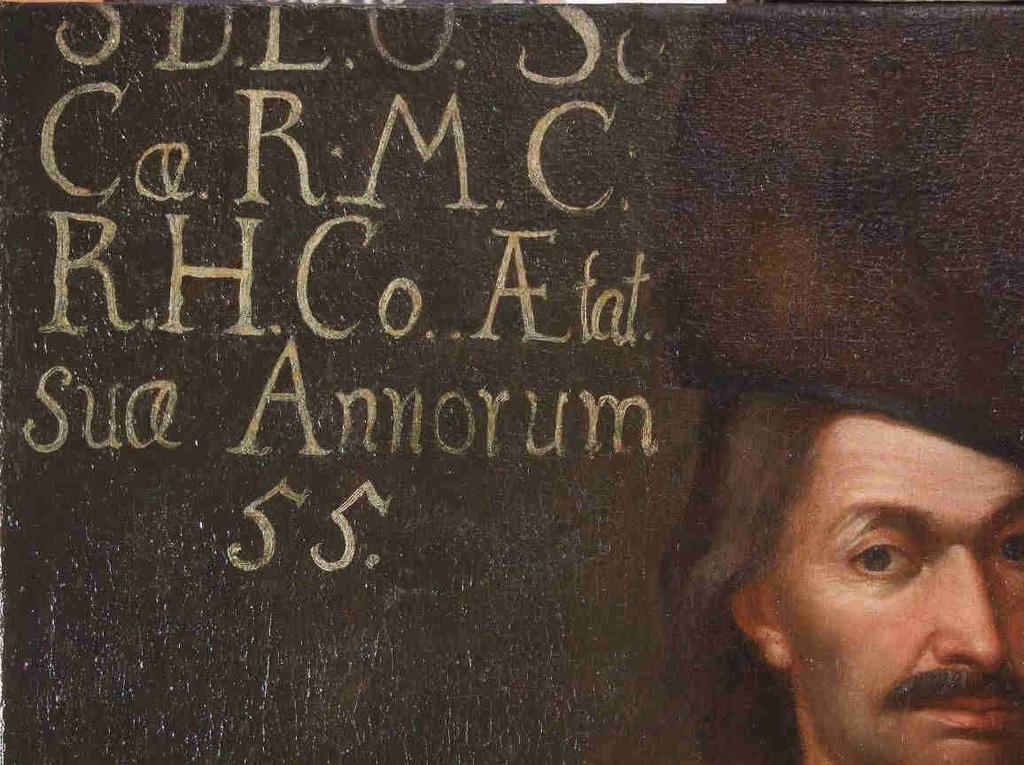 S D.L.O. Sc
Cæ. R. M. C.
R.H.Co.. Ætat.
suæ Annorum
55.